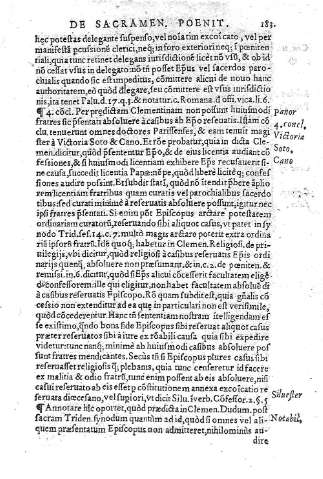 DE SACRAMEN. POENIT. 183.
hęc potestas delegante suspenso, vel noīatim excōīcato, vel per
manifestā pcussionē clerici, neq; in foro exteriori neq; ī pœniten
tiali, quia tunc retinet delegans iurisdictionē licèt nō vsū, & ob id
nō cessat vsus in delegato: nō tn̄ posset Ep̄us vel sacerdos paro-
chialis quando sic est impeditus, cōmittere alicui de nouo hanc
authoritatem, eo quòd dl̄egare, seu cōmittere est vsus iurisdictio
nis, ita tenet Palu. d. 17. q. 3. & notatur c. Romana d offi. vica. li. 6.
¶ 4. cōcl. Per prædictam Clementinam non possunt huiusmodi
fratres sic pn̄tati absoluere à casibus ab Ep̄o reseruatis. Istam cō
clu. tenuerunt omnes doctores Parisienses, & eam tenuit magi
ster à Victoria Soto & Cano. Et rōne probatur, quia in dicta Cle-
men. dicitur, quòd pn̄tentur Ep̄o, & de eius licentia audiant cō
fessiones, & si huiusmodi licentiam exhibere Ep̄s recusauerit si-
ne causa, succedit licentia Papæ
fessiones audire possint. Et subdit
rem licentiam fratribus quam curatis vel parochialibus sacerdo
tibus sed curati minimè à reseruatis absoluere possunt, igitur nec
ipsi fratres pn̄tati. Si enim pōt Episcopus arctare potestatem
ordinariam curatorū, reseruando sibi aliquot casus, vt patet in sy
nodo Trid. sess. 14. c. 7. multò magis arctare poterit extra ordina
riā ipsorū fratrū. Id quoq; habetur in Clemen. Religiosi. de pri-
uilegijs, vbi dicitur, quòd religiosi à casibus reseruatis Ep̄is ordi
narijs quenq; absoluere non præsumant, & in c. 2. de pœniten. &
remiss. in 6. dicitur, quòd si Ep̄s alicui cōcesserit facultatem eligē
di cōfessorem, ille qui eligitur, non habet facultatem absoluēdi
à casibus reseruatis Episcopo. Rō quam subdit est, quia gn̄alis cō
cessio non extenditur ad ea quæ in particulari non est verisimile,
quòd cōcederentur. Hanc tn̄ sententiam nostram intelligendam es
se existimo, quando bona fide Episcopus sibi reseruat aliquot casus
præter reseruatos sibi à iure ex rōnabili causa quia sibi expedire
videtur: tunc nanq; minimè ab huiusmodi casibus absoluere pos
sunt fratres mendicantes. Secùs tn̄ si Episcopus plures casus sibi
reseruasset religiosis q; plebanis, quia tunc censeretur id facere
ex malitia & odio fratrū, tunc enim possent ab eis absoluere, nisi
casui reseruato ab eis esset
reseruata diœcesano, vel superiori, vt dicit Silu. verb. Cōfessor. 2. §. 5
¶ Annotare hīc oportet, quòd prædicta in Clemen. Dudum. post
sacram Triden. synodum quantùm ad id, quòd si omnes vel ali-
quem præsentatum Episcopus non admitteret, nihilominus au-
dire
Victoria
Soto,
Cano
Siluester
Notabil,